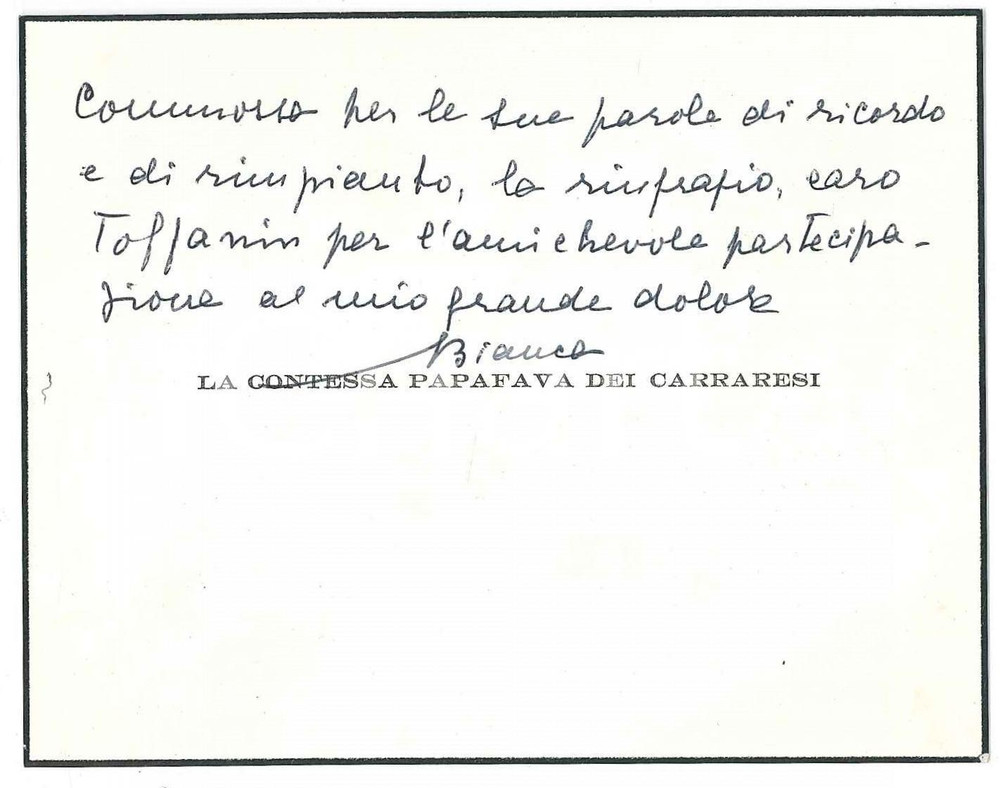 Commossa per le sue parole di ricordo
e di rimpianto, la ringrazio, caro
Toffanin per l'amichevole partecipa-
zione al mio grande dolore
Bianca
LA CONTESSA PAPAFAVA DEI CARRARESI